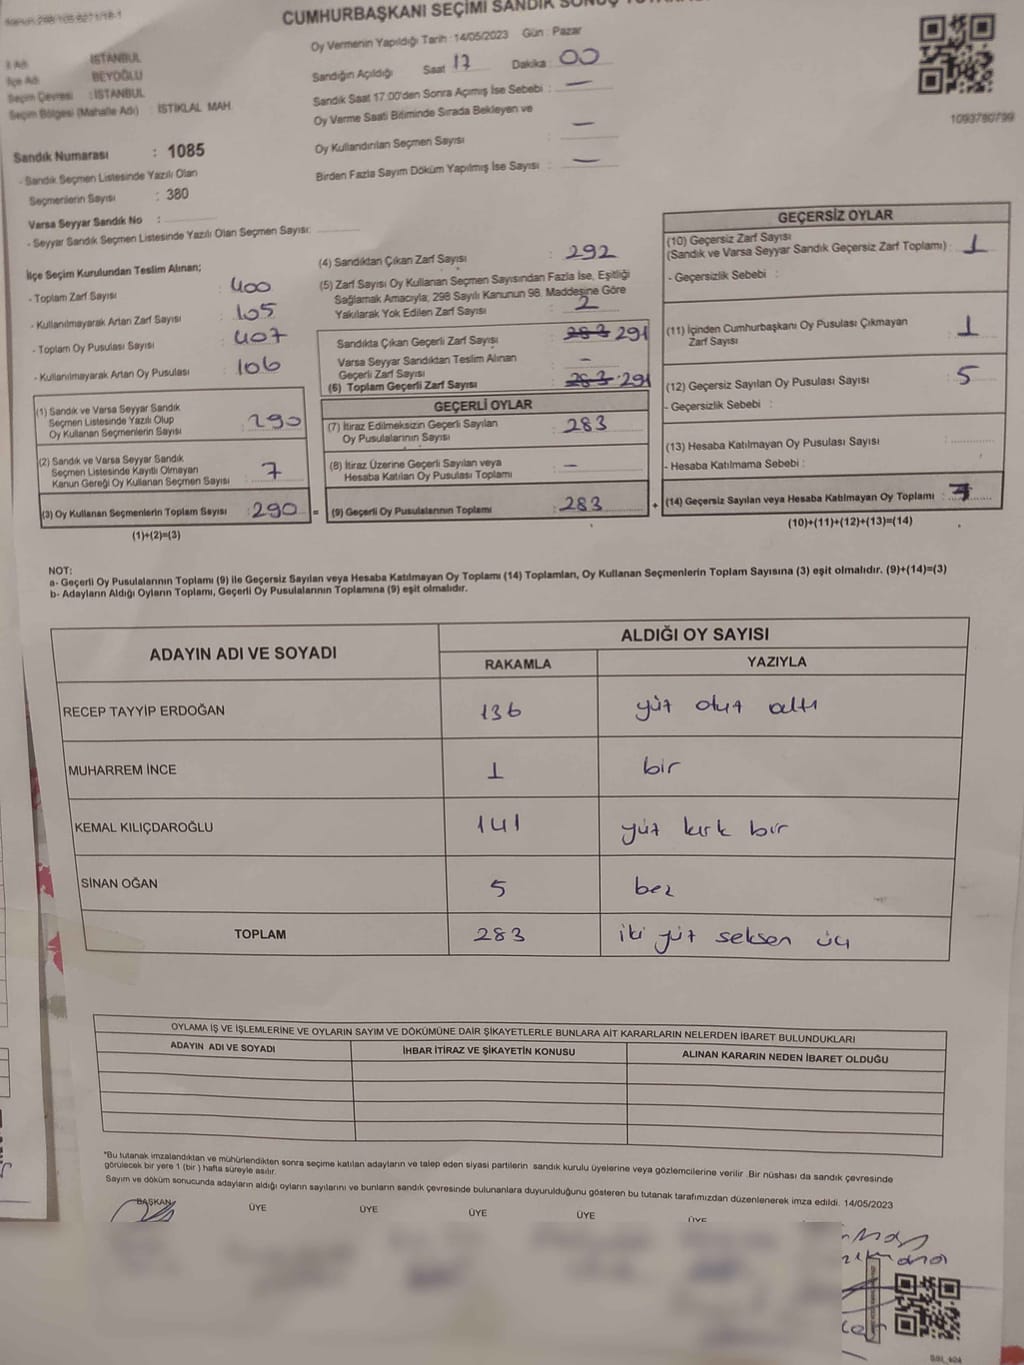 CUMHURBAŞKANI SEÇİMİ SANDIK SONUÇ
Oy Vermenin Yapıldığı Tarih : 14/05/2023 Gün : Pazar
İl Adı : İSTANBUL
İlçe Adı : BEYOĞLU
Seçim Çevresi : İSTANBUL
Seçim Bölgesi (Mahalle Adı) : İSTİKLAL MAH.
Sandığın Açıldığı Saat 17 Dakika : 00
Sandık Saat 17:00'den Sonra Açımış İse Sebebi : —
Oy Verme Saati Bitiminde Sırada Bekleyen ve
Oy Kullandırılan Seçmen Sayısı : —
Birden Fazla Sayım Döküm Yapılmış İse Sayısı : —
1093780799
Sandık Numarası : 1085
- Sandık Seçmen Listesinde Yazılı Olan
Seçmenlerin Sayısı : 380
Varsa Seyyar Sandık No :
- Seyyar Sandık Seçmen Listesinde Yazılı Olan Seçmen Sayısı:
İlçe Seçim Kurulundan Teslim Alınan;
- Toplam Zarf Sayısı : 400
- Kullanılmayarak Artan Zarf Sayısı : 105
- Toplam Oy Pusulası Sayısı : 407
- Kullanılmayarak Artan Oy Pusulası : 106
(1) Sandık ve Varsa Seyyar Sandık
Seçmen Listesinde Yazılı Olup
Oy Kullanan Seçmenlerin Sayısı : 290
(2) Sandık ve Varsa Seyyar Sandık
Seçmen Listesinde Kayıtlı Olmayan
Kanun Gereği Oy Kullanan Seçmen Sayısı : 7
(3) Oy Kullanan Seçmenlerin Toplam Sayısı : 290 =
(1)+(2)=(3)
(4) Sandıktan Çıkan Zarf Sayısı : 292
(5) Zarf Sayısı Oy Kullanan Seçmen Sayısından Fazla İse, Eşitliği
Sağlamak Amacıyla, 298 Sayılı Kanunun 98. Maddesine Göre
Yakılarak Yok Edilen Zarf Sayısı : 2
Sandıkta Çıkan Geçerli Zarf Sayısı : 283 291
Varsa Seyyar Sandıktan Teslim Alınan
Geçerli Zarf Sayısı : —
(6) Toplam Geçerli Zarf Sayısı : 283 291
GEÇERLİ OYLAR
(7) İtiraz Edilmeksizin Geçerli Sayılan
Oy Pusulalarının Sayısı : 283
(8) İtiraz Üzerine Geçerli Sayılan veya
Hesaba Katılan Oy Pusulası Toplamı : —
(9) Geçerli Oy Pusulalarının Toplamı : 283 +
GEÇERSİZ OYLAR
(10) Geçersiz Zarf Sayısı
(Sandık ve Varsa Seyyar Sandık Geçersiz Zarf Toplamı) : 1
- Geçersizlik Sebebi :
(11) İçinden Cumhurbaşkanı Oy Pusulası Çıkmayan
Zarf Sayısı : 1
(12) Geçersiz Sayılan Oy Pusulası Sayısı : 5
- Geçersizlik Sebebi :
(13) Hesaba Katılmayan Oy Pusulası Sayısı :
- Hesaba Katılmama Sebebi :
(14) Geçersiz Sayılan veya Hesaba Katılmayan Oy Toplamı : 7
(10)+(11)+(12)+(13)=(14)
NOT:
a- Geçerli Oy Pusulalarının Toplamı (9) ile Geçersiz Sayılan veya Hesaba Katılmayan Oy Toplamı (14) Toplamları, Oy Kullanan Seçmenlerin Toplam Sayısına (3) eşit olmalıdır. (9)+(14)=(3)
b- Adayların Aldığı Oyların Toplamı, Geçerli Oy Pusulalarının Toplamına (9) eşit olmalıdır.
ADAYIN ADI VE SOYADI ALDIĞI OY SAYISI
RAKAMLA YAZIYLA
RECEP TAYYİP ERDOĞAN 136 yüz otuz altı
MUHARREM İNCE 1 bir
KEMAL KILIÇDAROĞLU 141 yüz kırk bir
SİNAN OĞAN 5 beş
TOPLAM 283 iki yüz seksen üç
OYLAMA İŞ VE İŞLEMLERİNE VE OYLARIN SAYIM VE DÖKÜMÜNE DAİR ŞİKAYETLERLE BUNLARA AİT KARARLARIN NELERDEN İBARET BULUNDUKLARI
ADAYIN ADI VE SOYADI İHBAR İTİRAZ VE ŞİKAYETİN KONUSU ALINAN KARARIN NEDEN İBARET OLDUĞU
*Bu tutanak imzalandıktan ve mühürlendikten sonra seçime katılan adayların ve talep eden siyasi partilerin sandık kurulu üyelerine veya gözlemcilerine verilir .Bir nüshası da sandık çevresinde
görülecek bir yere 1 (bir ) hafta süreyle asılır.
Sayım ve döküm sonucunda adayların aldığı oyların sayılarını ve bunların sandık çevresinde bulunanlara duyurulduğunu gösteren bu tutanak tarafımızdan düzenlenerek imza edildi. 14/05/2023
BAŞKAN ÜYE ÜYE ÜYE ÜYE ÜYE